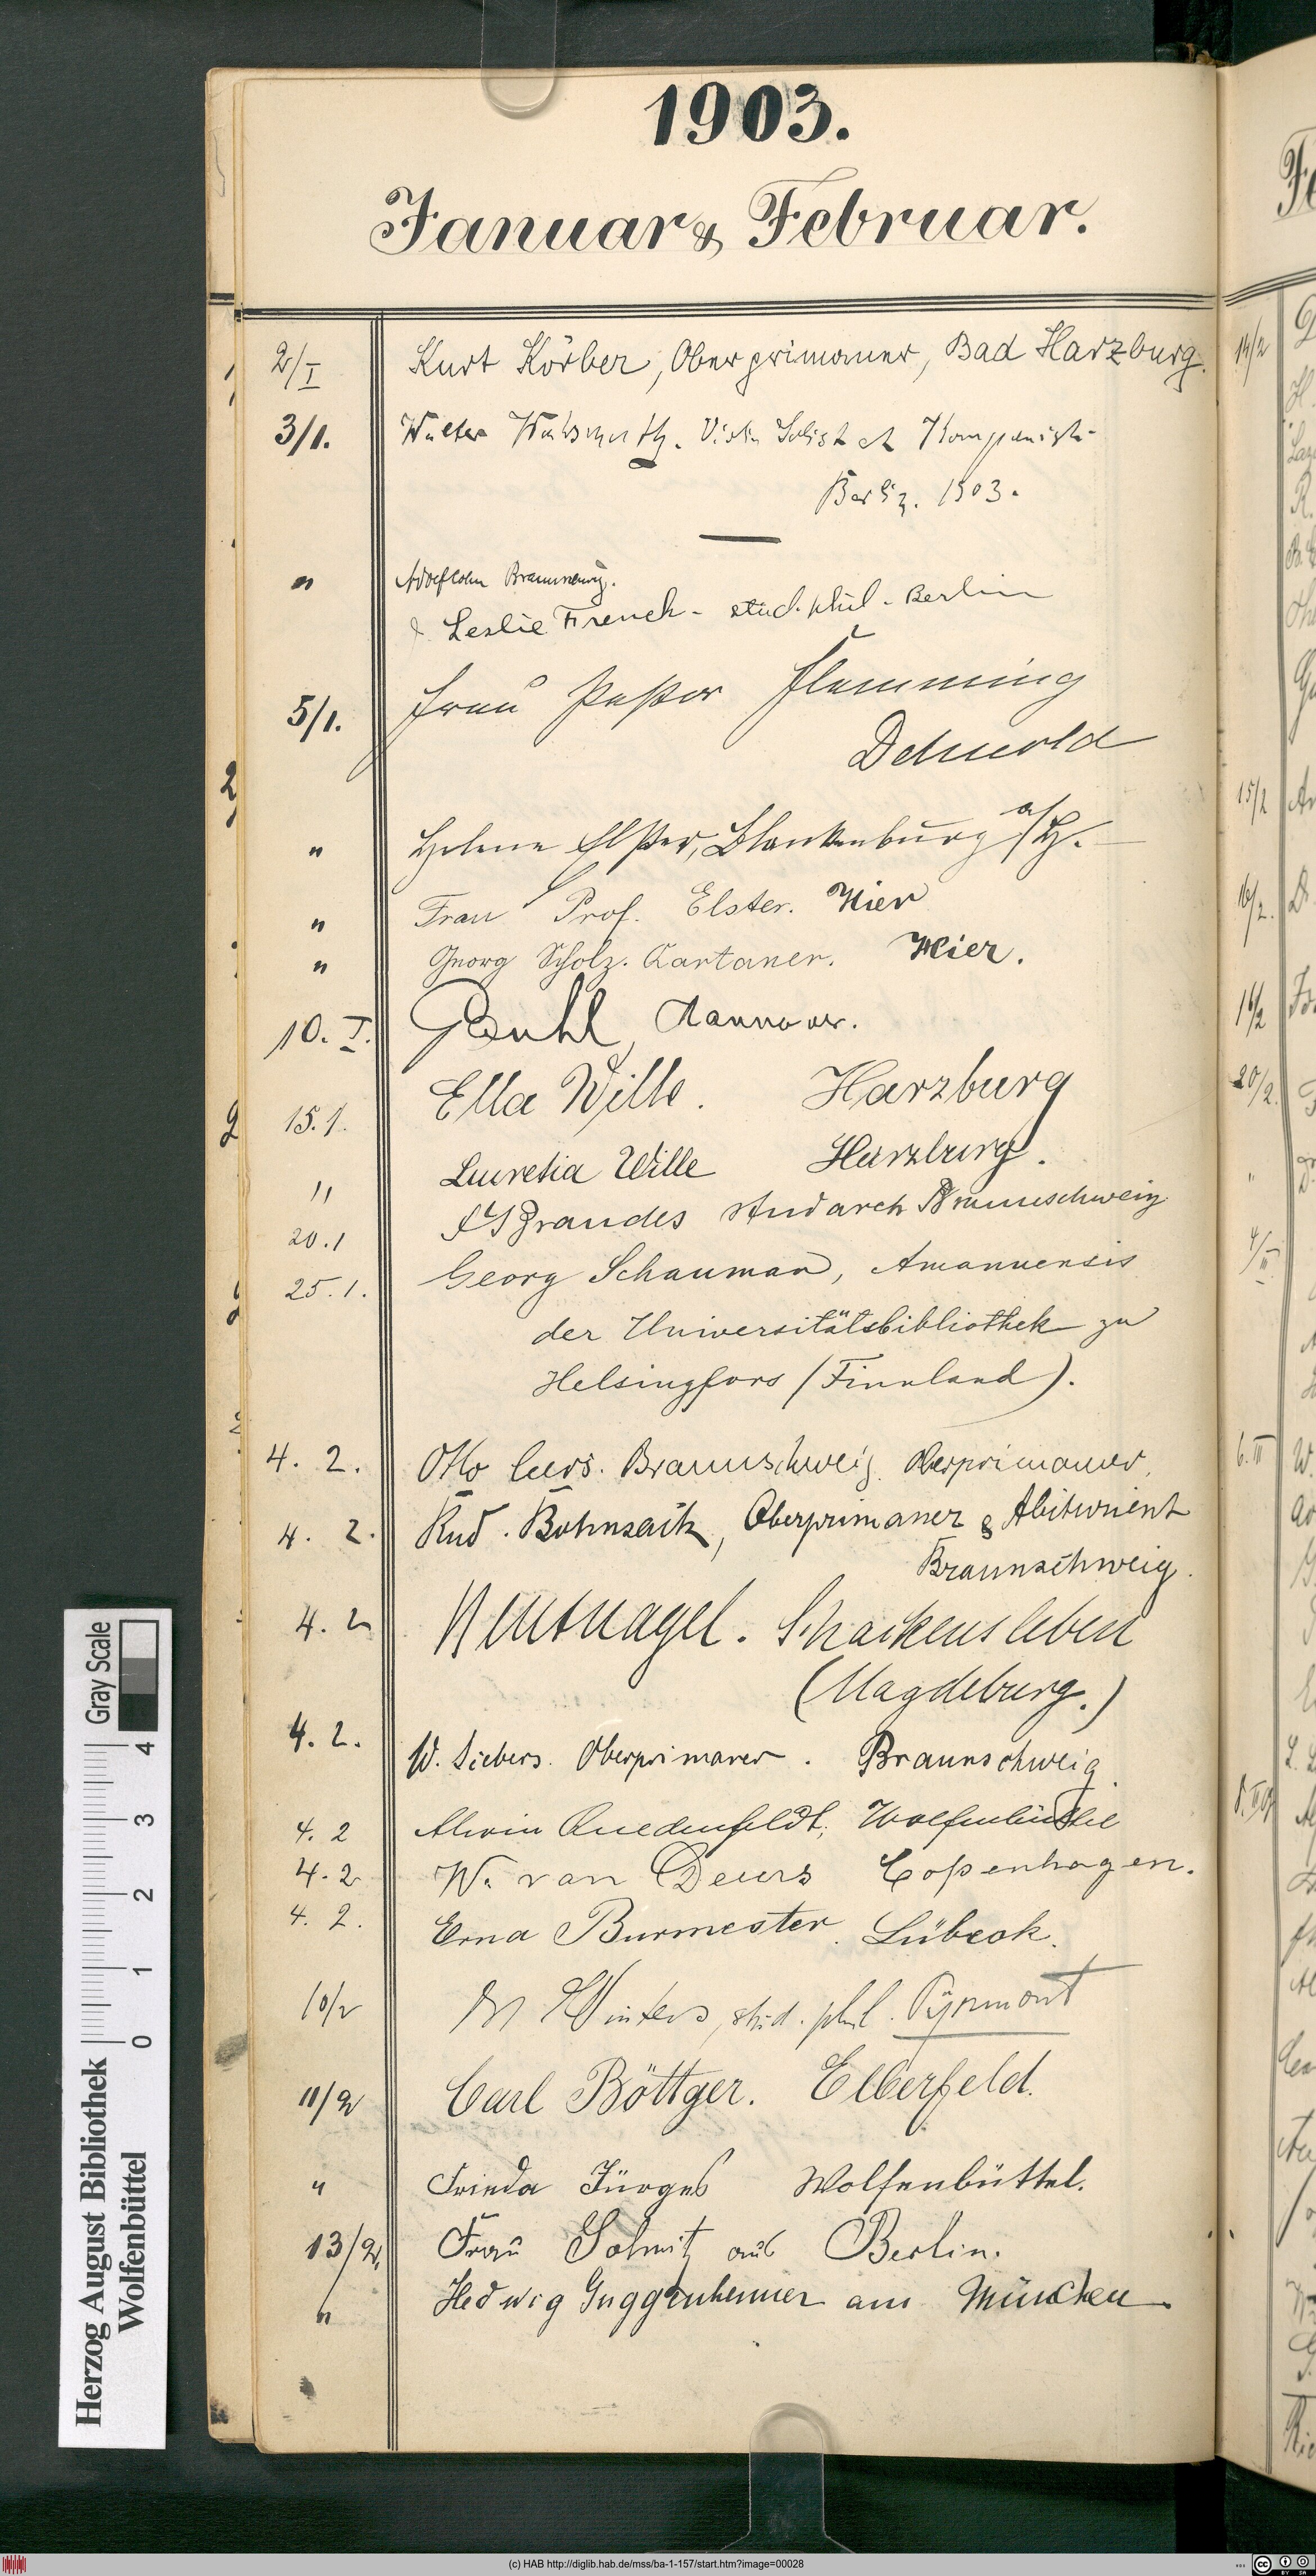 1903.
Januar & Februar.
2/I Kurt Körber, Oberprimaner, Bad Harzburg.
3/1. Walter Violin Solist et Komponist
Berlin. 1903.
" Adolf Cohn Braunschweig.
& Leslie French - stud. phil. Berlin
5/1. Frau Pastor Flemming
Detmold
" Helene Elster, Blankenburg a/H.
" Frau Prof. Elster. Hier
" Georg Scholz. Hier.
10. I. Hannover.
15. 1. Ella Wille. Harzburg
" Lucretia Wille Harzburg.
20. 1 Brandes stud arch Braunschweig
25. 1. Georg Schauman, Amanuensis
der Universitätsbibliothek zu
Helsingfors (Finnland).
4. 2. Otto Braunschweig. Oberprimaner.
4. 2. Rud. Bohnsack, Oberprimaner & Abiturient
Braunschweig.
4. 2 Schackensleben
(Magdeburg.)
4. 2. W. Siebers. Oberprimaner. Braunschweig.
4. 2 Alwin Quedenfeldt, Wolfenbüttel
4. 2 W. van Deurs Copenhagen.
4. 2. Erna Burmester. Lübeck.
10/2 Winters, stud. phil. Pyrmont
11/2 Carl Böttger. Elberfeld.
" Frieda Jürges Wolfenbüttel.
13/2. Frau aus Berlin.
" Hedwig Guggenheimer aus München.
Herzog August Bibliothek
Wolfenbüttel
0 1 2 3 4
Gray Scale
14/2
15/2
16/2.
16/2
20/2.
"
4/II
6. II
(c) HAB http://diglib.hab.de/mss/ba-1-157/start.htm?image=00028